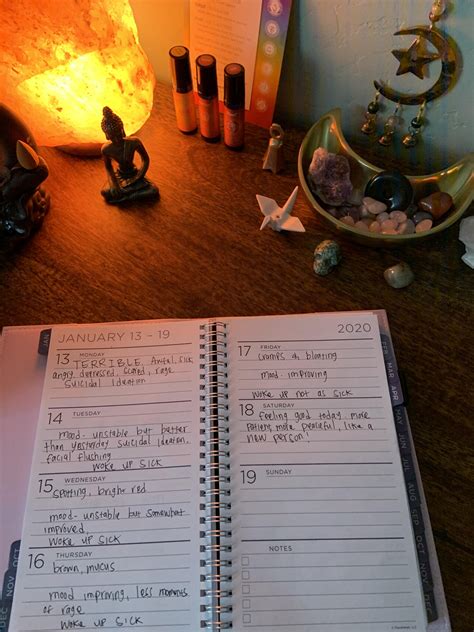 JAN
JANUARY 13 - 19
13 MONDAY
TERRIBLE. Anital, sick
angry depressed, scared, rage
suicidal Ideation
14 TUESDAY
mood- unstable but better
than yesterday suicidal ideation,
facial flushing
WOKE UP SICK
15 WEDNESDAY
Spotting, bright red
mood- unstable but somewhat
improved,
WOKE UP SICK
16 THURSDAY
brown, mucus
mood improving, less moments
of rage
WOKE UP SICK
2020
17 FRIDAY
cramps & bloating
mood- improving
WOKE UP not as SICK
18 SATURDAY
feeling good today, more
patient, more peaceful, like a
new person!
19 SUNDAY
NOTES
FEB
MAR
APR
MAY
JUN
JUL
AUG
SEP
OCT
NOV
DEC
OCT
NOV
DEC